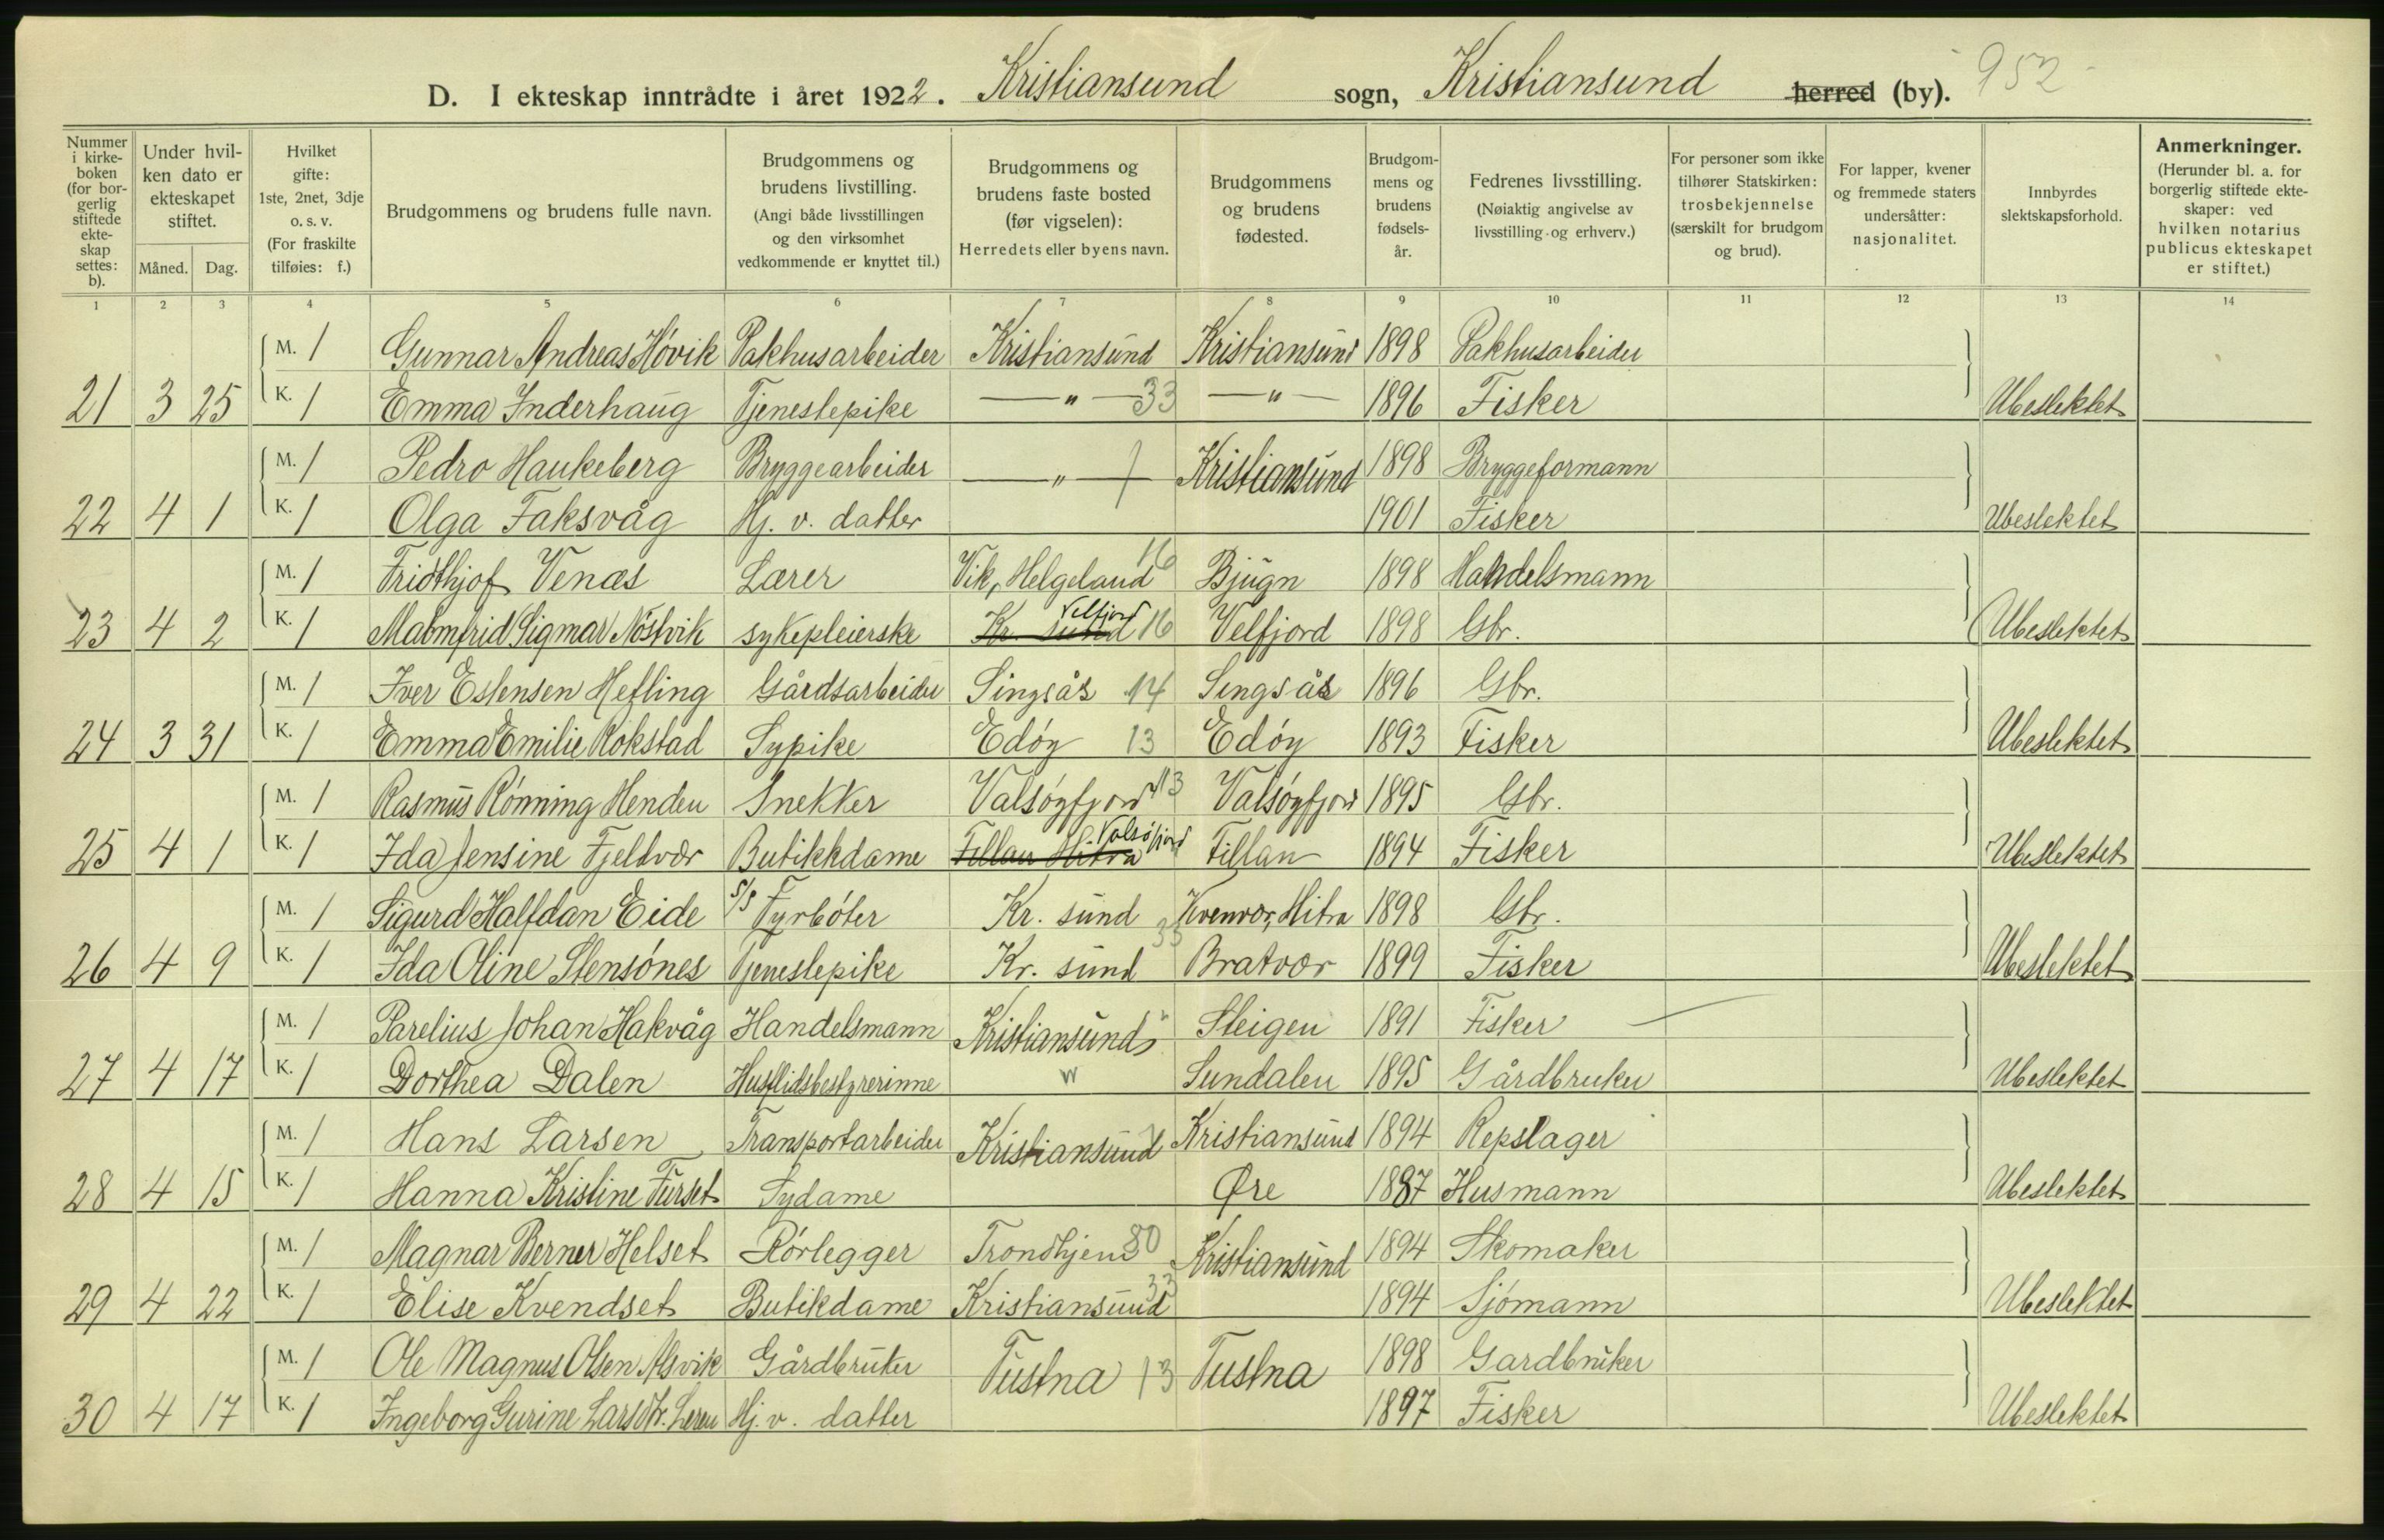 D. I ekteskap inntrådte i året 1922. Kristiansund sogn, Kristiansund herred (by). 952
Nummer i kirkeboken (for borgerlig stiftede ekteskap settes: b).
Under hvilken dato er ekteskapet stiftet.
Måned. Dag.
Hvilket gifte: 1ste, 2net, 3dje o. s. v. (For fraskilte tilføies: f.)
Brudgommens og brudens fulle navn.
Brudgommens og brudens livstilling. (Angi både livsstillingen og den virksomhet vedkommende er knyttet til.)
Brudgommens og brudens faste bosted (før vigselen): Herredets eller byens navn.
Brudgommens og brudens fødested.
Brudgommens og brudens fødselsår.
Fedrenes livsstilling. (Nøiaktig angivelse av livsstilling og erhverv.)
For personer som ikke tilhører Statskirken: trosbekjennelse (særskilt for brudgom og brud).
For lapper, kvener og fremmede staters undersåtter: nasjonalitet.
Innbyrdes slektskapsforhold.
Anmerkninger. (Herunder bl. a. for borgerlig stiftede ekteskaper: ved hvilken notarius publicus ekteskapet er stiftet.)
1 2 3 4 5 6 7 8 9 10 11 12 13 14
M. 1 Gunnar Andreas Høvik Pakhusarbeider Kristiansund Kristiansund 1898 Pakhusarbeider
21 3 25 K. 1 Emma Inderhaug Tjenestepike — " — 33 — " — 1896 Fisker Ubeslektet
M. 1 Pedro Haukeberg Bryggearbeider — " — Kristiansund 1898 Bryggeformann
22 4 1 K. 1 Olga Faksvåg Hj. v. datter 1901 Fisker Ubeslektet
M. 1 Fridthjof Venæs Lærer Vik, Helgeland 16 Bjugn 1898 Handelsmann
23 4 2 K. 1 Malmfrid Sigmar Nøstvik sykepleierske Kr. sund Velfjord 16 Velfjord 1898 Gbr. Ubeslektet
M. 1 Iver Estensen Hefling Gårdsarbeider Singsås 14 Singsås 1896 Gbr.
24 3 31 K. 1 Emma Emilie Rokstad Sypike Edøy 13 Edøy 1893 Fisker Ubeslektet
M. 1 Rasmus Rønning Henden Snekker Valsøyfjord 13 Valsøyfjord 1895 Gbr.
25 4 1 K. 1 Ida Jensine Fjeldvær Butikkdame Fillan Hitra Valsøfjord Fillan 1894 Fisker Ubeslektet
M. 1 Sigurd Halfdan Eide s/s Fyrbøter Kr. sund Kvenvær, Hitra 1898 Gbr.
26 4 9 K. 1 Ida Oline Stensønes Tjenestepike Kr. sund 33 Bratvær 1899 Fisker Ubeslektet
M. 1 Parelius Johan Hakvåg Handelsmann Kristiansund Steigen 1891 Fisker
27 4 17 K. 1 Dorthea Dalen Husflidsbestyrerinne " Sundalen 1895 Gårdbruker Ubeslektet
M. 1 Hans Larsen Transportarbeider Kristiansund Kristiansund 1894 Repslager
28 4 15 K. 1 Hanna Kristine Furset Sydame Øre 1887 Husmann Ubeslektet
M. 1 Magnar Berner Helset Rørlegger Trondhjem 80 Kristiansund 1894 Skomaker
29 4 22 K. 1 Elise Kvendset Butikdame Kristiansund 33 1894 Sjømann Ubeslektet
M. 1 Ole Magnus Olsen Alsvik Gårdbruker Tustna 13 Tustna 1898 Gardbruker
30 4 17 K. 1 Ingeborg Gurine Larsdtr. Leren Hj. v. datter 1897 Fisker Ubeslektet